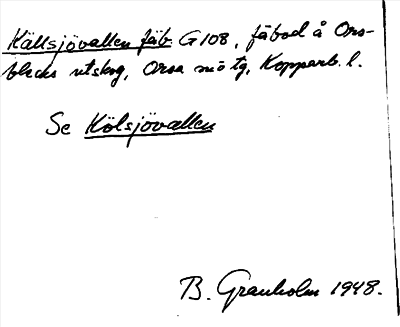 Källsjövallen fäb G108, fäbod å Ors-
blecks utskog, Orsa sn o tg, Kopparb. l.
Se Kölsjövallen
B. Granholm 1948.